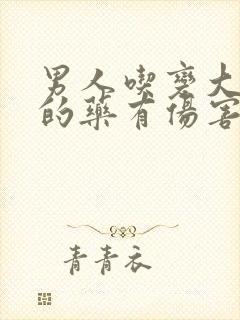 男人喫變大
的藥有傷害
青青衣